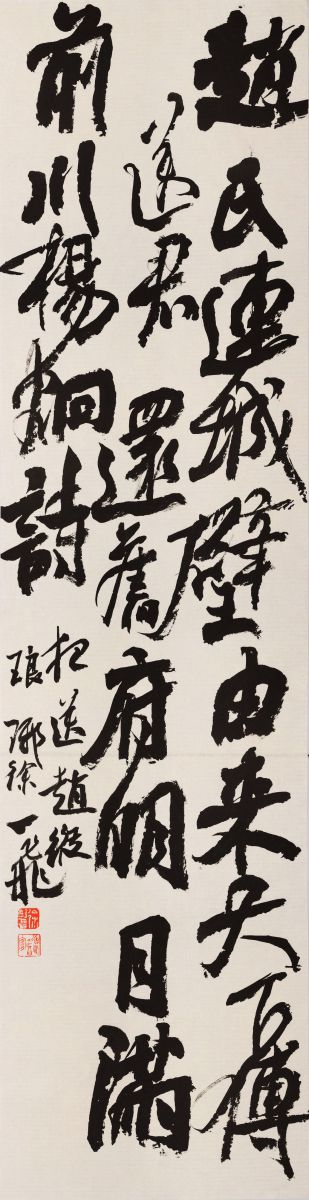 趙氏連城璧由来天下傳
送君還舊府明月滿
前川楊炯詩
夜送趙縱
琅琊徐一飛